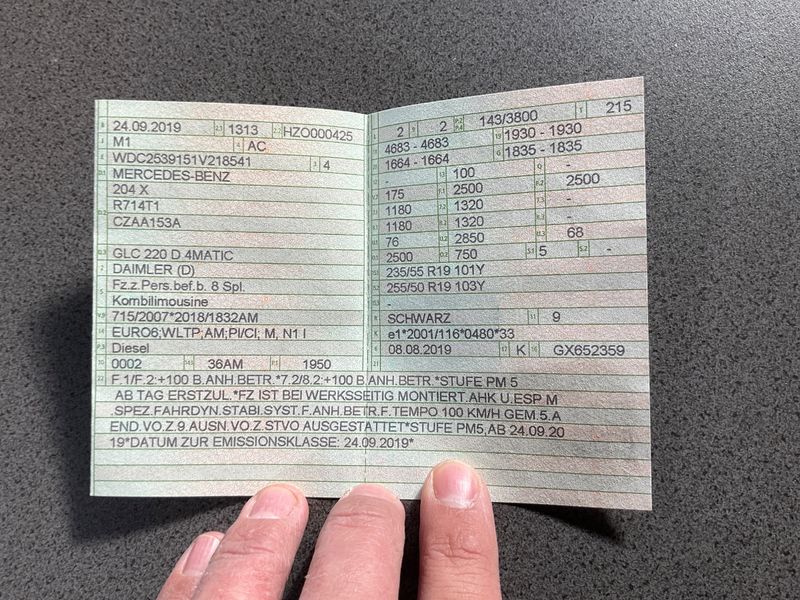 B 24.09.2019 2.1 1313 2.2 HZO000425
J M1 4 AC
E WDC2539151V218541 3 4
D.1 MERCEDES-BENZ
204 X
D.2 R714T1
CZAA153A
D.3 GLC 220 D 4MATIC
2 DAIMLER (D)
5 Fz.z.Pers.bef.b. 8 Spl.
Kombilimousine
V.9 715/2007*2018/1832AM
14 EURO6;WLTP;AM;PI/CI; M, N1 I
P.3 Diesel
10 0002 14.1 36AM P.1 1950
L 2 9 2 P.2 P.4 143/3800 T 215
18 4683 - 4683 19 1930 - 1930
20 1664 - 1664 G 1835 - 1835
12 - 13 100 Q -
V.7 175 F.1 2500 F.2 2500
7.1 1180 7.2 1320 7.3 -
8.1 1180 8.2 1320 8.3 -
U.1 76 U.2 2850 U.3 68
O.1 2500 O.2 750 S.1 5 S.2 -
15.1 235/55 R19 101Y
15.2 255/50 R19 103Y
15.3 -
R SCHWARZ 11 9
K e1*2001/116*0480*33
6 08.08.2019 17 K 16 GX652359
21
22 F.1/F.2:+100 B.ANH.BETR.*7.2/8.2:+100 B.ANH.BETR.*STUFE PM 5
AB TAG ERSTZUL.*FZ IST BEI WERKSSEITIG MONTIERT.AHK U.ESP M
.SPEZ.FAHRDYN.STABI.SYST.F.ANH.BETR.F.TEMPO 100 KM/H GEM.5.A
END.VO.Z.9.AUSN.VO.Z.STVO AUSGESTATTET*STUFE PM5,AB 24.09.20
19*DATUM ZUR EMISSIONSKLASSE: 24.09.2019*